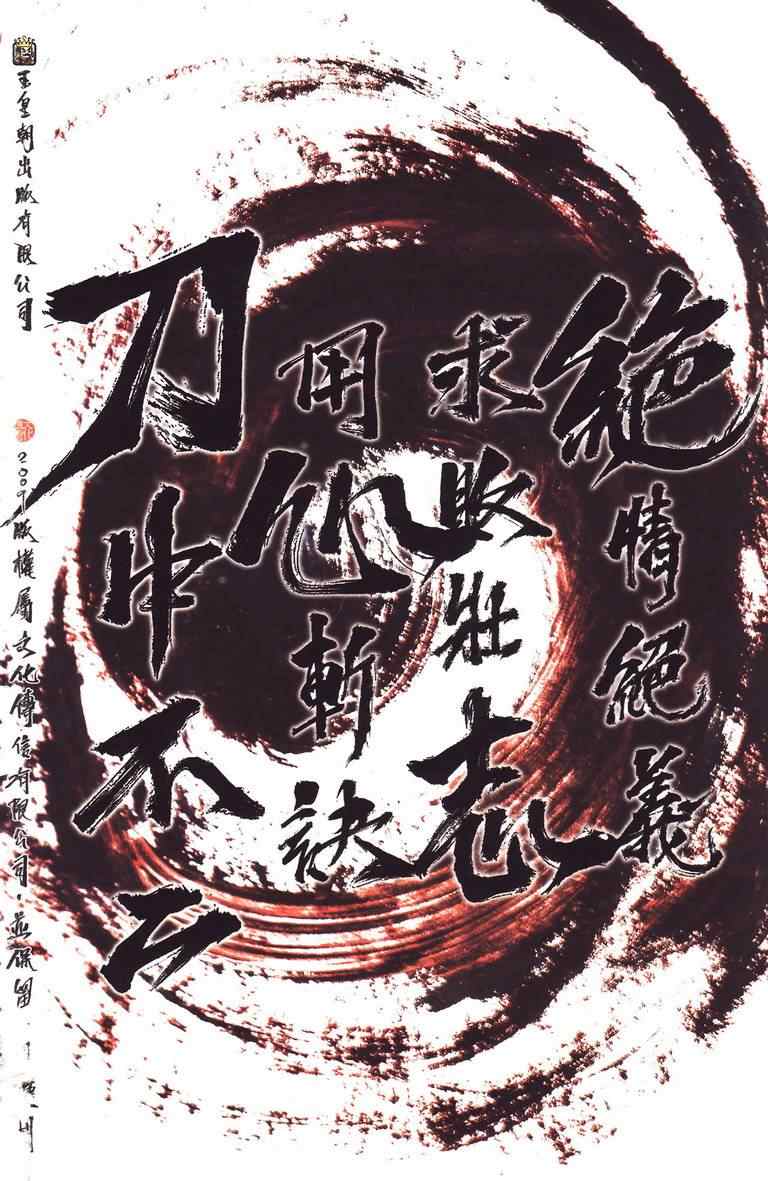 絕情絕義
求敗壯志
用斬訣
刀中不二
玉皇朝出版有限公司
2009版權屬文化傳信有限公司·並保留